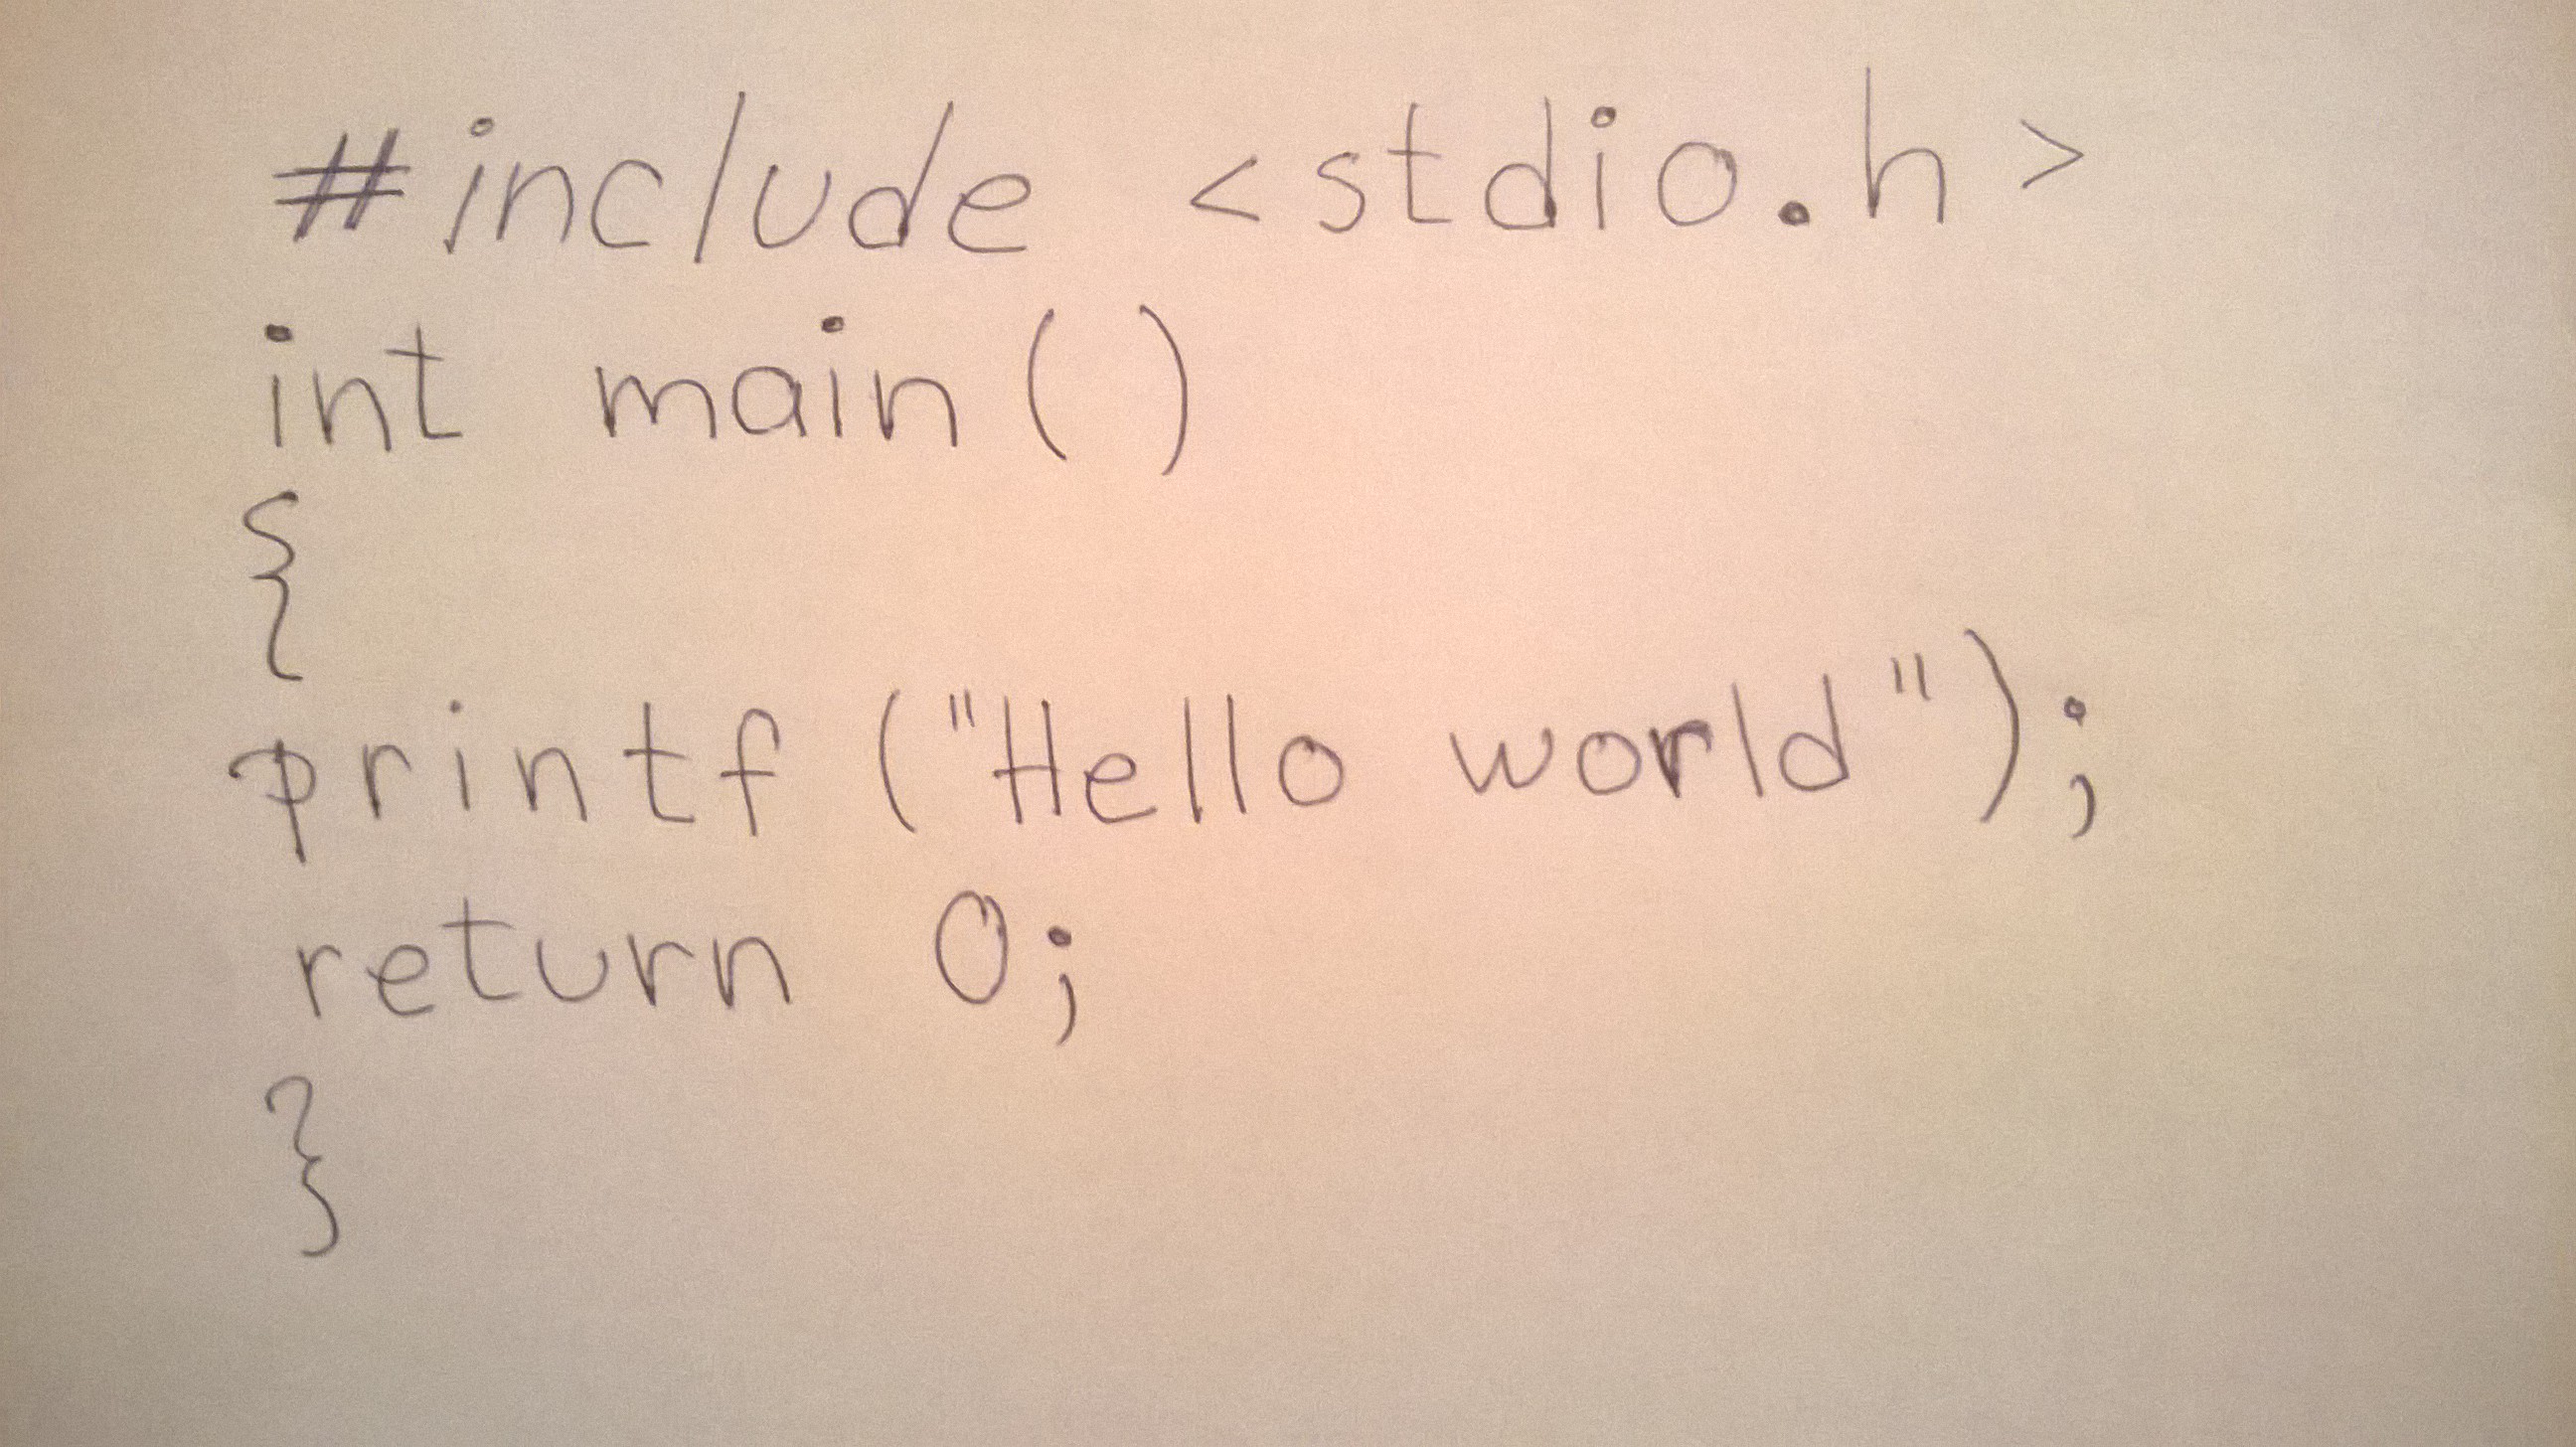 #include <stdio.h>
int main()
{
printf ("Hello world");
return 0;
}